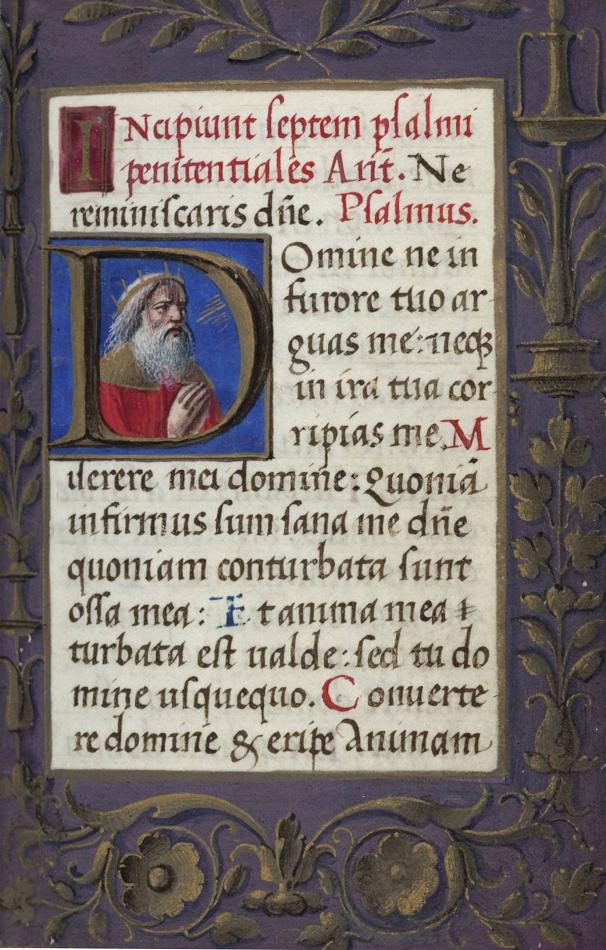 INcipiunt septem psalmi
penitentiales Añt. Ne
reminiscaris dñe. Psalmus.
Domine ne in
furore tuo ar-
guas me: neqꝫ
in ira tua cor-
ripias me. M
iserere mei domine: Quoniã
infirmus sum sana me dñe
quoniam conturbata sunt
ossa mea: Et anima mea
turbata est ualde: sed tu do
mine usquequo. Conuerte-
re domine & eripe Animam